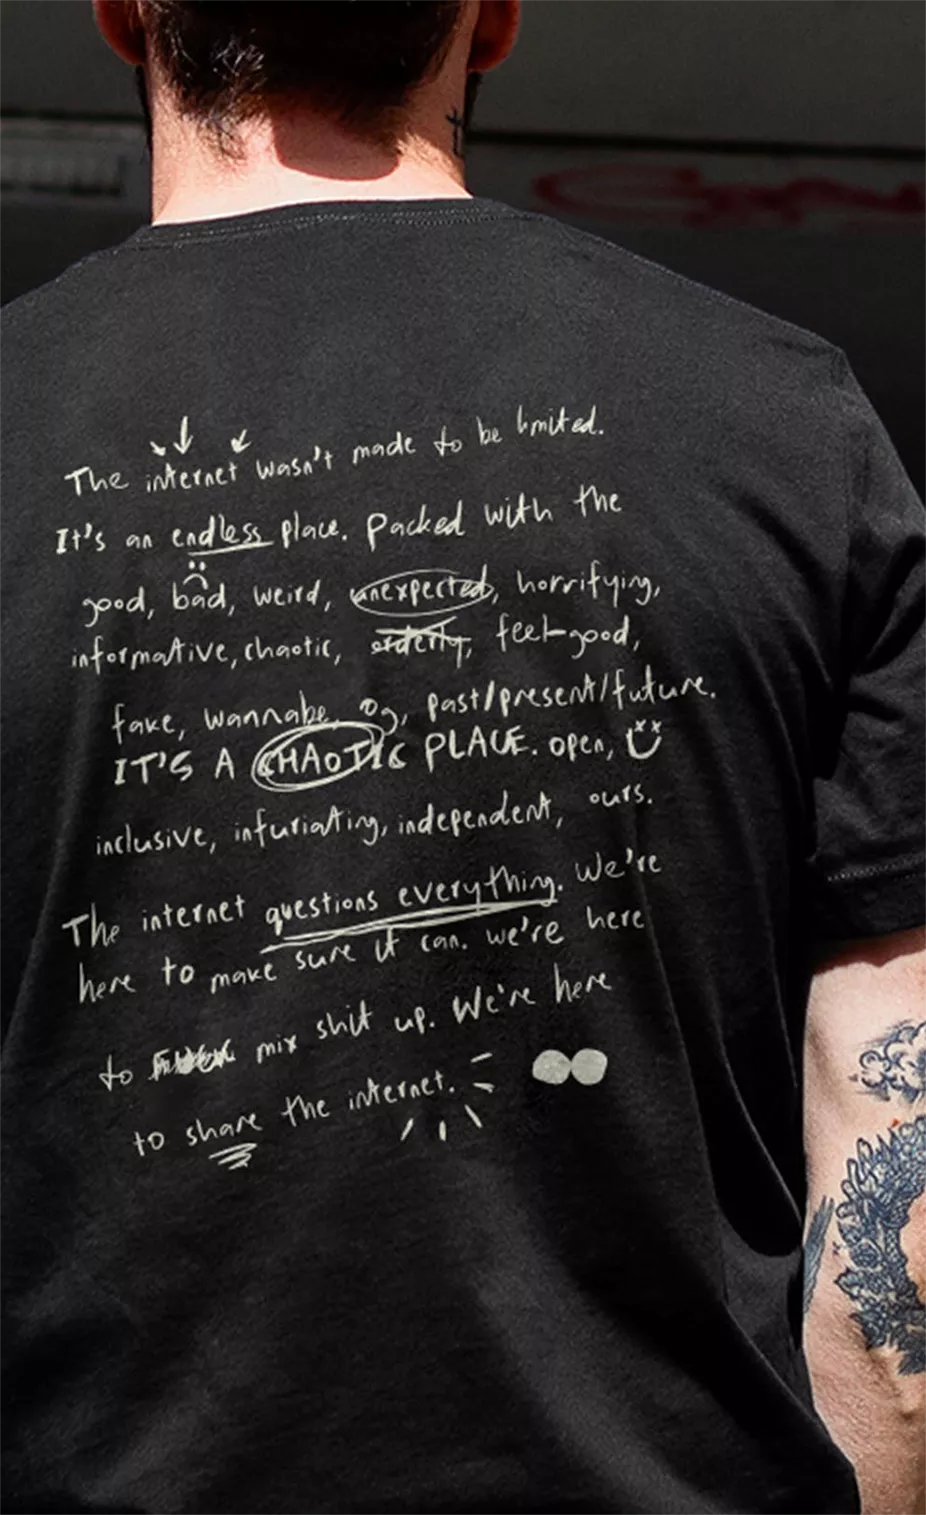 The internet wasn't made to be limited.
It's an endless place. Packed with the
good, bad, weird, unexpected, horrifying,
informative, chaotic, orderly, feel-good,
fake, wannabe, og, past/present/future.
IT'S A CHAOTIC PLACE. open,
inclusive, infuriating, independent, ours.
The internet questions everything. We're
here to make sure it can. we're here
to mix shit up. We're here
to share the internet.